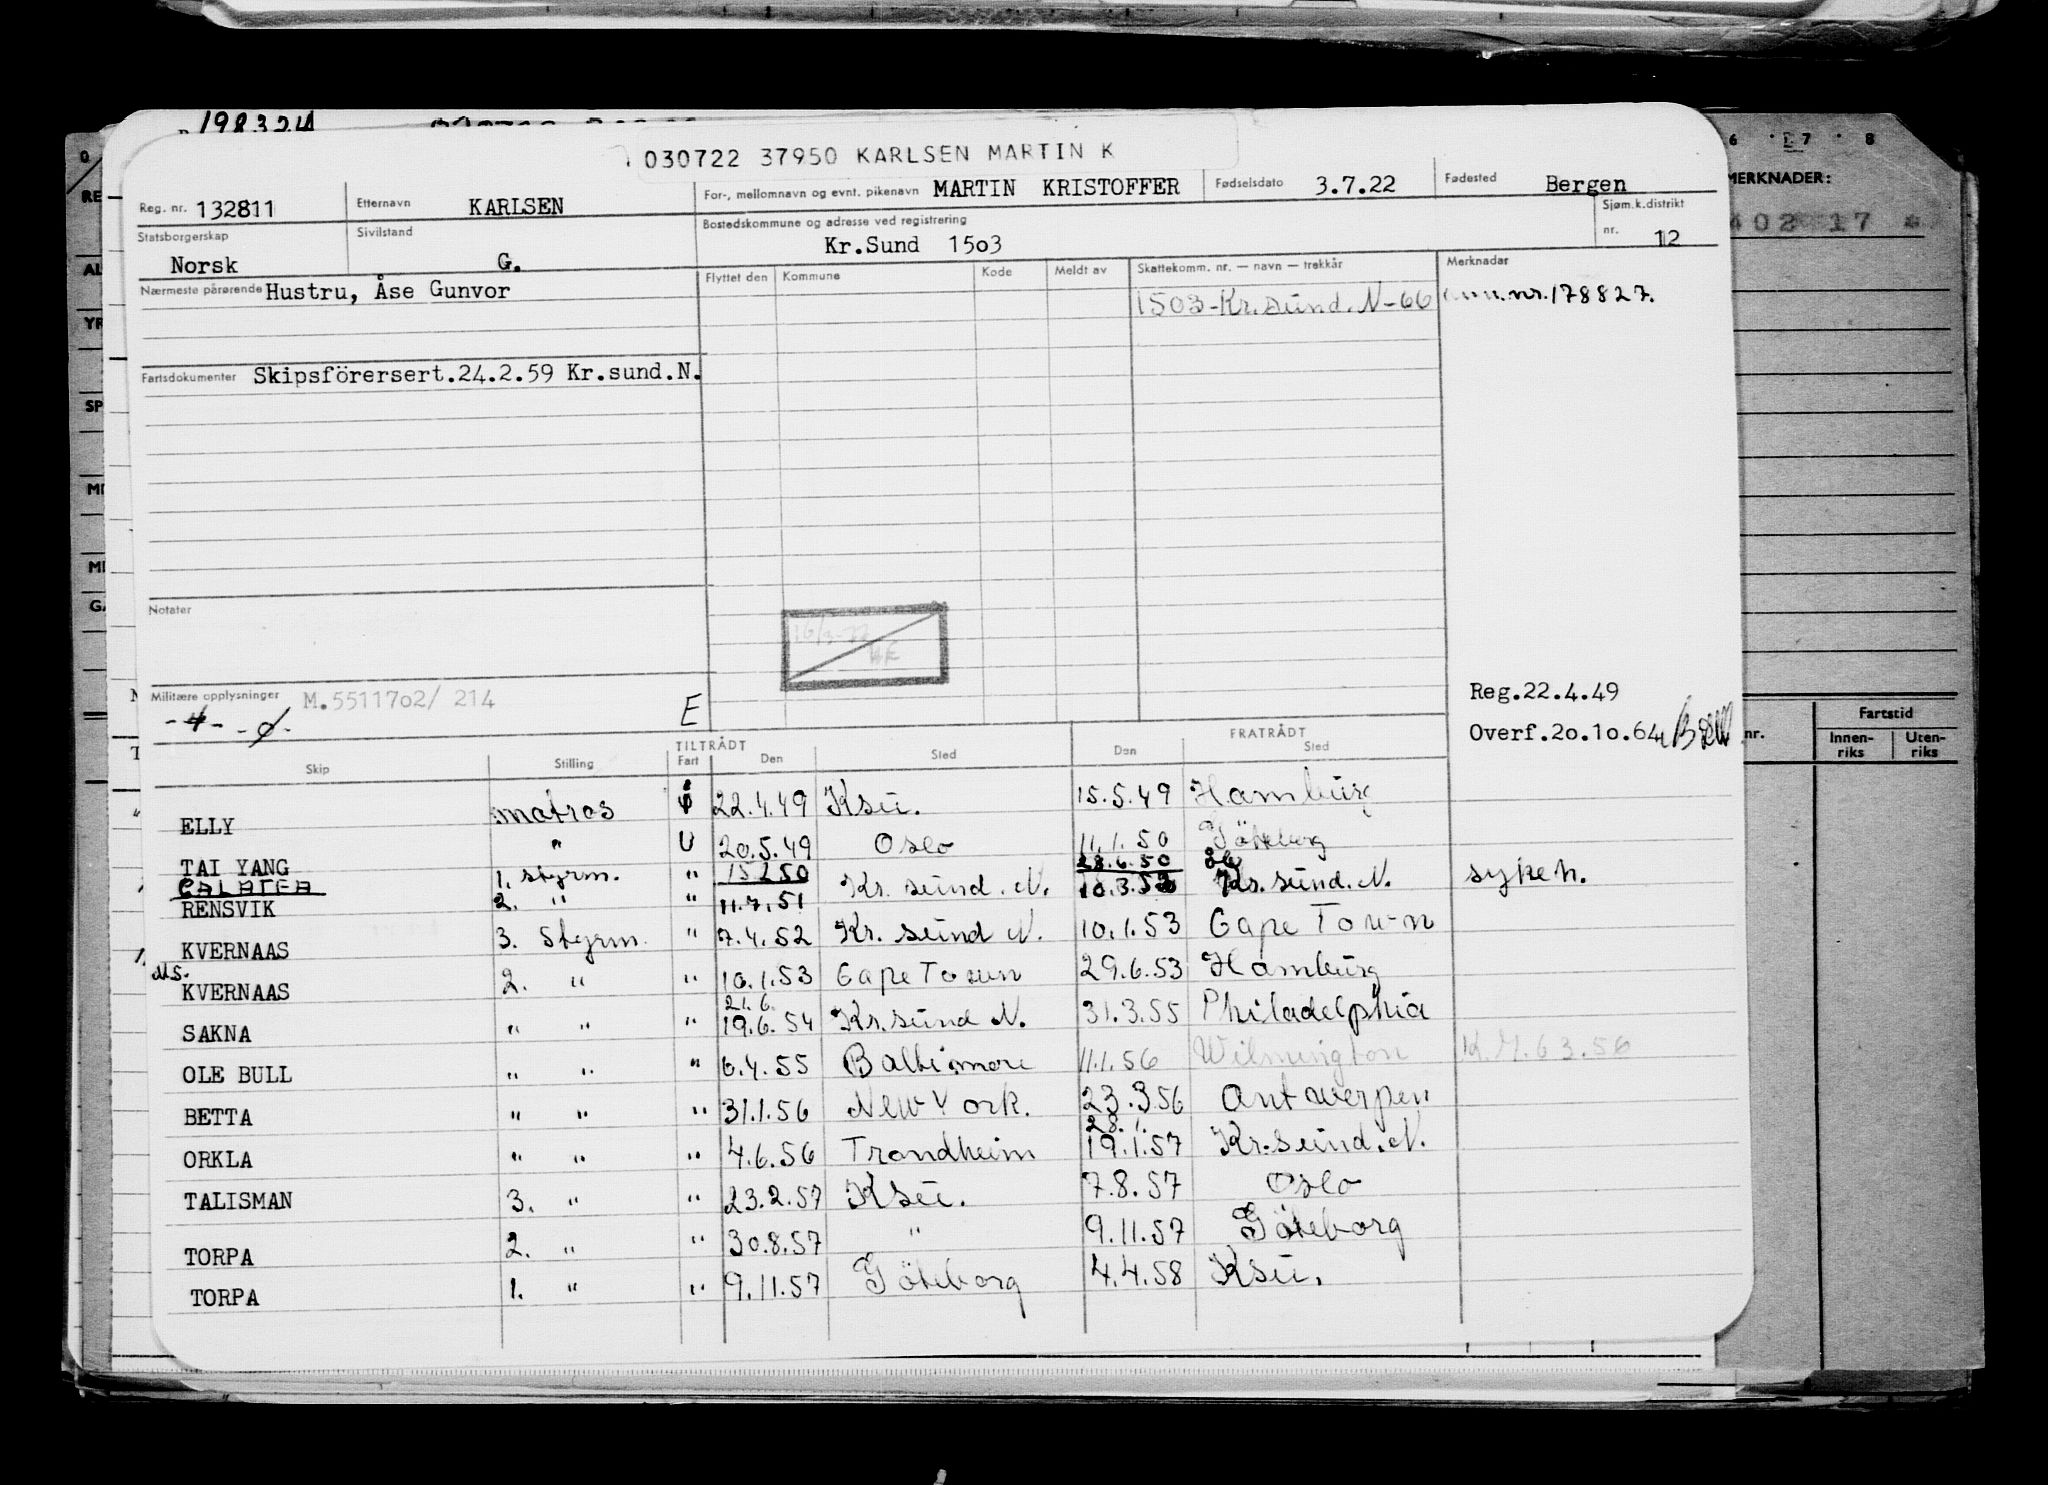 198324
030722 37950 KARLSEN MARTIN K
Reg. nr. 132811 Etternavn KARLSEN For-, mellomnavn og evnt. pikenavn MARTIN KRISTOFFER Fødselsdato 3.7.22 Fødested Bergen
Statsborgerskap Norsk Sivilstand G. Bostedskommune og adresse ved registrering Kr.Sund 1503 Sjøm.k.distrikt nr. 12
Nærmeste pårørende Hustru, Åse Gunvor Flyttet den Kommune Kode Meldt av Skattekomm. nr. — navn — trekkår Merknader
1503-Kr.sund.N-66 nr.178827.
Fartsdokumenter Skipsförersert.24.2.59 Kr.sund.N.
Notater
Militære opplysninger M.5511702/ 214 E
Reg.22.4.49
Overf.20.10.64
TILTRÅDT FRATRÅDT
Skip Stilling Fart Den Sted Den Sted
ELLY matros 22.4.49 Ksu. 15.5.49 Hamburg
TAI YANG " U 20.5.49 Oslo 11.1.50 Göteborg
1. styrm. " 28.6.50
RENSVIK 2. " " 11.7.51 Kr. sund. N. Kr. sund. N. sykeh.
KVERNAAS 3. Styrm. " 7.4.52 Kr. sund N. 10.1.53 Cape Town
Ms.
KVERNAAS 2. " " 10.1.53 Cape Town 29.6.53 Hamburg
21.6.
SAKNA " " " 19.6.54 Kr.sund N. 31.3.55 Philadelphia
OLE BULL " " " 6.4.55 Baltimore 11.1.56 Wilmington K.M.6.3.56
BETTA " " " 31.1.56 New York. 23.3.56 Antwerpen
28.1.
ORKLA " " " 4.6.56 Trondheim 19.1.57 Kr.sund.N.
TALISMAN 3. " " 23.2.57 Ksu. 7.8.57 Oslo
TORPA 2. " " 30.8.57 " 9.11.57 Göteborg
TORPA 1. " " 9.11.57 Göteborg 4.4.58 Ksu.
6 7 8
MERKNADER:
402 17
nr. Fartstid
Innen-riks Uten-riks